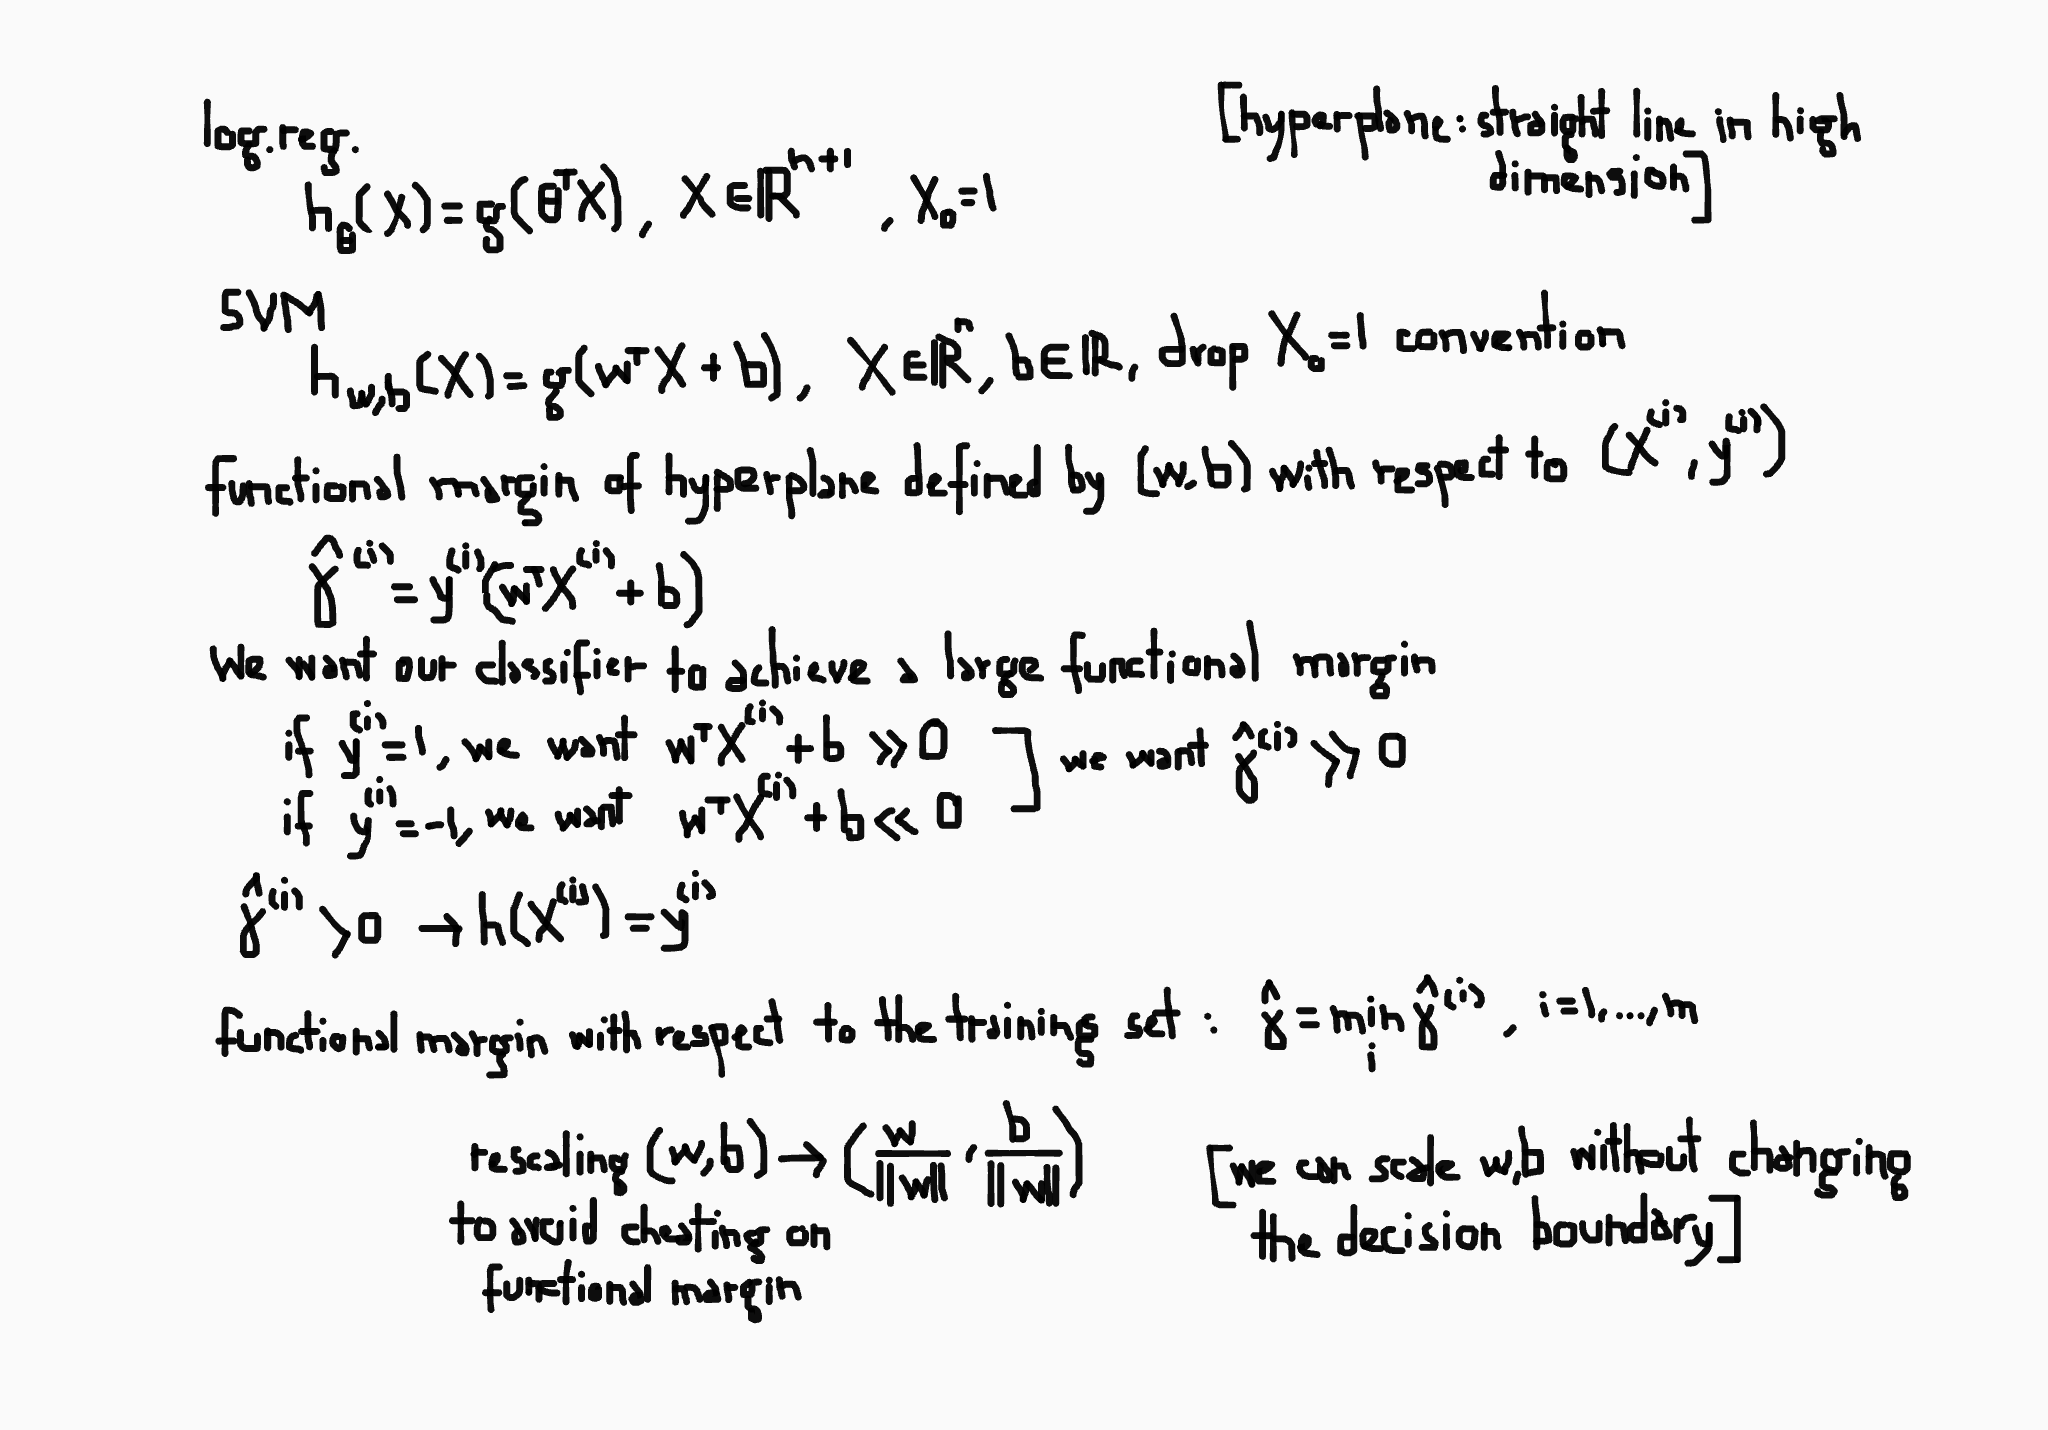 log.reg.
[hyperplane: straight line in high
dimension]
h_θ(X) = g(θ^T X), X ∈ ℝ^{n+1}, X_0 = 1
SVM
h_{w,b}(X) = g(w^T X + b), X ∈ ℝ^n, b ∈ ℝ, drop X_0 = 1 convention
functional margin of hyperplane defined by (w,b) with respect to (X^{(i)}, y^{(i)})
γ̂^{(i)} = y^{(i)}(w^T X^{(i)} + b)
We want our classifier to achieve a large functional margin
if y^{(i)} = 1, we want w^T X^{(i)} + b ≫ 0
if y^{(i)} = -1, we want w^T X^{(i)} + b ≪ 0
] we want γ̂^{(i)} ≫ 0
γ̂^{(i)} > 0 → h(X^{(i)}) = y^{(i)}
functional margin with respect to the training set : γ̂ = min_i γ̂^{(i)}, i = 1, ..., m
rescaling (w,b) → (w/||w||, b/||w||)
to avoid cheating on
functional margin
[we can scale w,b without changing
the decision boundary]